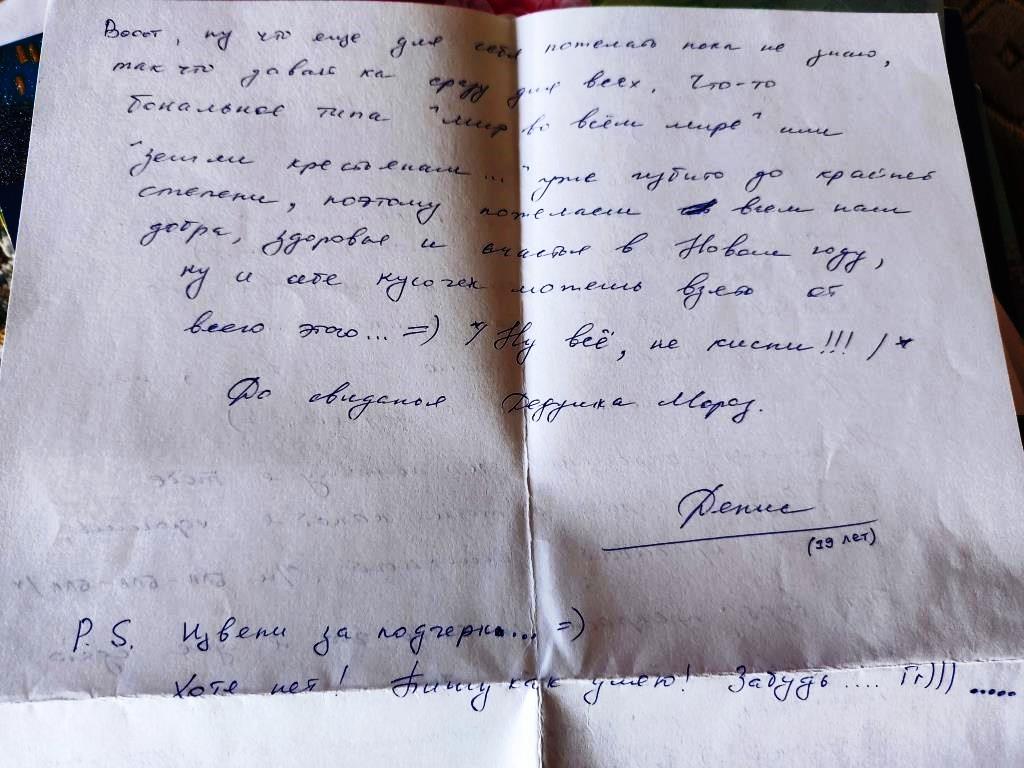 Воот, ну что еще для себя пожелать пока не знаю,
так что давай ка сразу для всех. Что-то
бональное типа "мир во всём мире" или
"Земли крестьянам..." уже избито до крайней
степени, поэтому пожелаем всем нам
добра, здоровья и счастья в Новом году,
ну и себе кусочек можешь взять от
всего этого... =) */ Ну всё, не кисни!!! /*
До свиданья Дедушка Мороз.
Денис
(19 лет)
P.S. Извени за подчерк... =)
Хотя нет! Пишу как умею! Забудь .... Гг))) .....